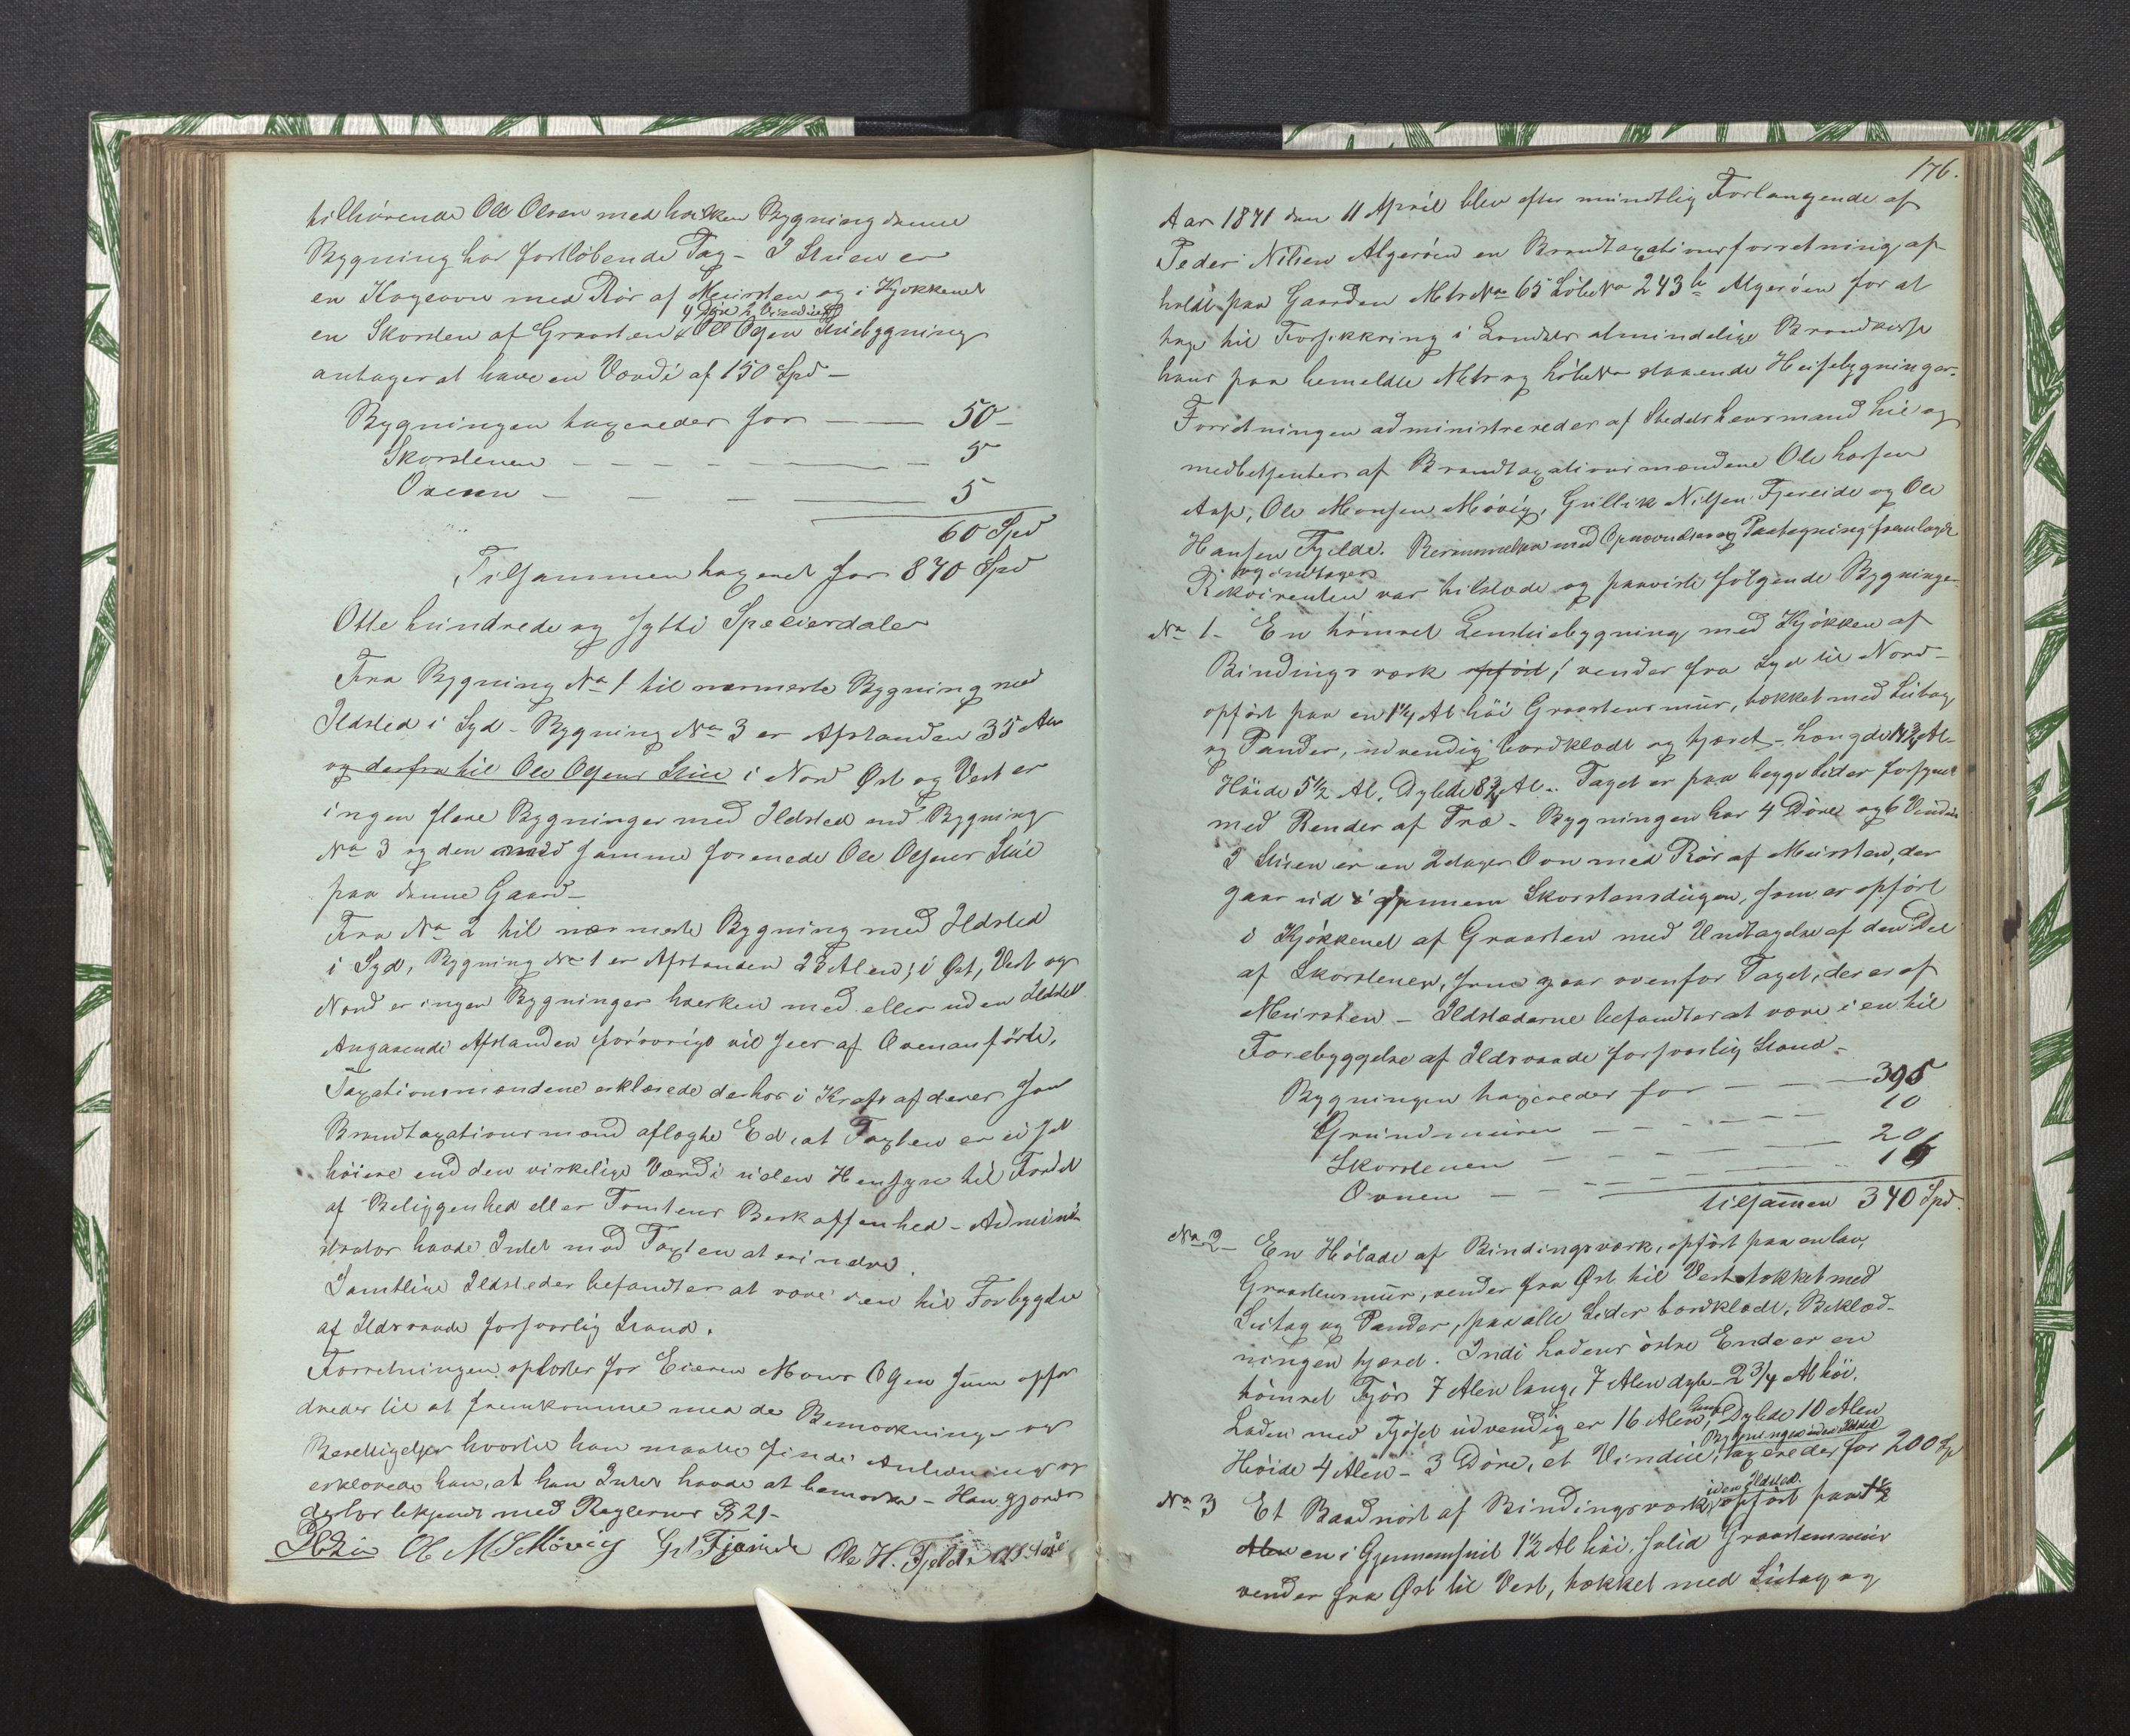 tilhørende Ole Olsen med hvilken Bygning denne
Bygning har fortløbende Tag – I Stuen er
en Kogeovn med Rør af Muursten og i Kjøkkenet
4 Døre 2 Vinduer
en Skorsten af Graasten Ole Olsen Stuebygning
antages at have en Værdi af 150 Spd –
Bygningen taxeredes for — — 50 –
Skorstenen — — — 5
Ovnen — — — 5
60 Spd
Tilsammen taxeret for 870 Spd
Otte hundrede og sytti Speciedaler
Fra Bygning No 1 til nærmeste Bygning med
Ildsted i Syd – Bygning No 3 er Afstanden 35 Alen
og derfra til Ole Olsens Stue i Nord Øst og Vest er
ingen flere Bygninger med Ildsted end Bygning
No 3 og den med samme forenede Ole Olsens Stue
paa denne Gaard –
Fra No 2 til nærmeste Bygning med Ildsted
i Syd, Bygning No 1 er Afstanden 28 Alen; i Øst, Vest og
Nord er ingen Bygninger hverken med eller uden Ildsted
Angaaende Afstanden forøvrigt vil sees af Ovenanførte.
Taxationsmændene erklærede derhos i Kraft af deres som
Brandtaxationsmænd aflagte Ed, at Taxten er ei sat
høiere end den virkelige Værdi uden Hensyn til Fordel
af Beliggenhed eller Tomtens Beskaffenhed – Admini-
strator havde Intet mod Taxten at erindre.
Samtlige Ildsteder befandtes at være i en til Forbyggelse
af Ildsvaade forsvarlig Stand.
Forretningen oplæstes for Eieren Mons Olsen som opfor
dredes til at fremkomme med de Bemærkninger og
Berettigelser hvortil han maatte finde Anledning og
erklærede han, at han Intet havde at bemærke – Han gjordes
derhos bekjendt med Reglernes § 21 –
Ole H. Fjelde
176.
Aar 1871 den 11 April blev efter mundtlig Forlangende af
Peder Nilsen Algerøen en Brandtaxationsforretning af-
holdt paa Gaarden Matr No 65 Løbe No 243 b Algerøen for at
tage til Forsikkring i Landets almindelige Brandkasse
hans paa bemeldte Matr og Løbe No staaende Husebygninger.
Forretningen administreredes af Stedets Lensmand Lie og
medbetjentes af Brandtaxationsmændene Ole Larsen
Ask, Ole Monsen Møvig, Gullik Nilsen Fjereide og Ole
Hansen Fjelde. Berammelsen med Opnævnelse og Paategning fremlagdes
og indtages
Rekvirenten var tilstede og paaviste følgende Bygninger
No 1 – En tømret Lemstuebygning med Kjøkken af
Bindingsværk opført, vender fra Syd til Nord –
opført paa en 1 1/4 Al høi Graastensmuur, tækket med Leitag
og Pander, udvendig bordklædt og tjæret – Længde 14 3/4 Al –
Høide 5 1/2 Al. Dybde 8 3/4 Al. Taget er paa begge Sider forsynet
med Render af Træ – Bygningen har 4 Døre og 6 Vinduer
I Stuen er en 2 etages Ovn med Rør af Muursten, der
gaar ud i gjennem Skorstensdugen, som er opført
i Kjøkkenet af Graasten med Undtagelse af den Del
af Skorstenen, som gaar ovenfor Taget, der er af
Muursten – Ildstederne befandtes at være i en til
Forebyggelse af Ildsvaade forsvarlig Stand –
Bygningen taxeredes for — — 395
Grundmuren — — — 10
Skorstenen — — — 20
Ovnen — — —
tilsammen 340 Spd.
No 2 – En Hølade af Bindingsværk, opført paa en lav,
Graastensmuur, vender fra Øst til Vest tækket med
Leitag og Pander, paa alle Sider bordklædt, Beklæd-
ningen tjæret. Indi Ladens østre Ende er en
tømret Fjøs 7 Alen lang, 7 Alen dyb – 2 3/4 Al høi.
Laden med Fjøset udvendig er 16 Alen lang, Dybde 10 Alen
Bygningen uden Ildsted
Høide 4 Alen – 3 Døre, et Vindue, taxeredes for 200 Sp
uden Ildsted.
No 3 Et Baadnøst af Bindingsværk opført paa 1 1/2
Alen en i Gjennemsnit 1 1/2 Al høi, solid Graastensmuur
vender fra Øst til Vest, tækket med Leitag og